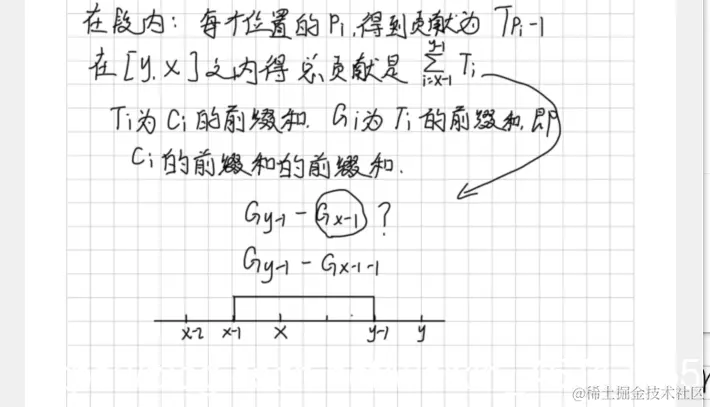 在段内：每个位置的Pi,得到贡献为 TPi-1
在[y,x]之内得总贡献是 y-1∑i=x-1 Ti
Ti为Ci的前缀和. Gi为Ti的前缀和,即
Ci的前缀和的前缀和.
Gy-1 - Gx-1 ?
Gy-1 - Gx-1-1
x-2 x-1 x y-1 y
@稀土掘金技术社区